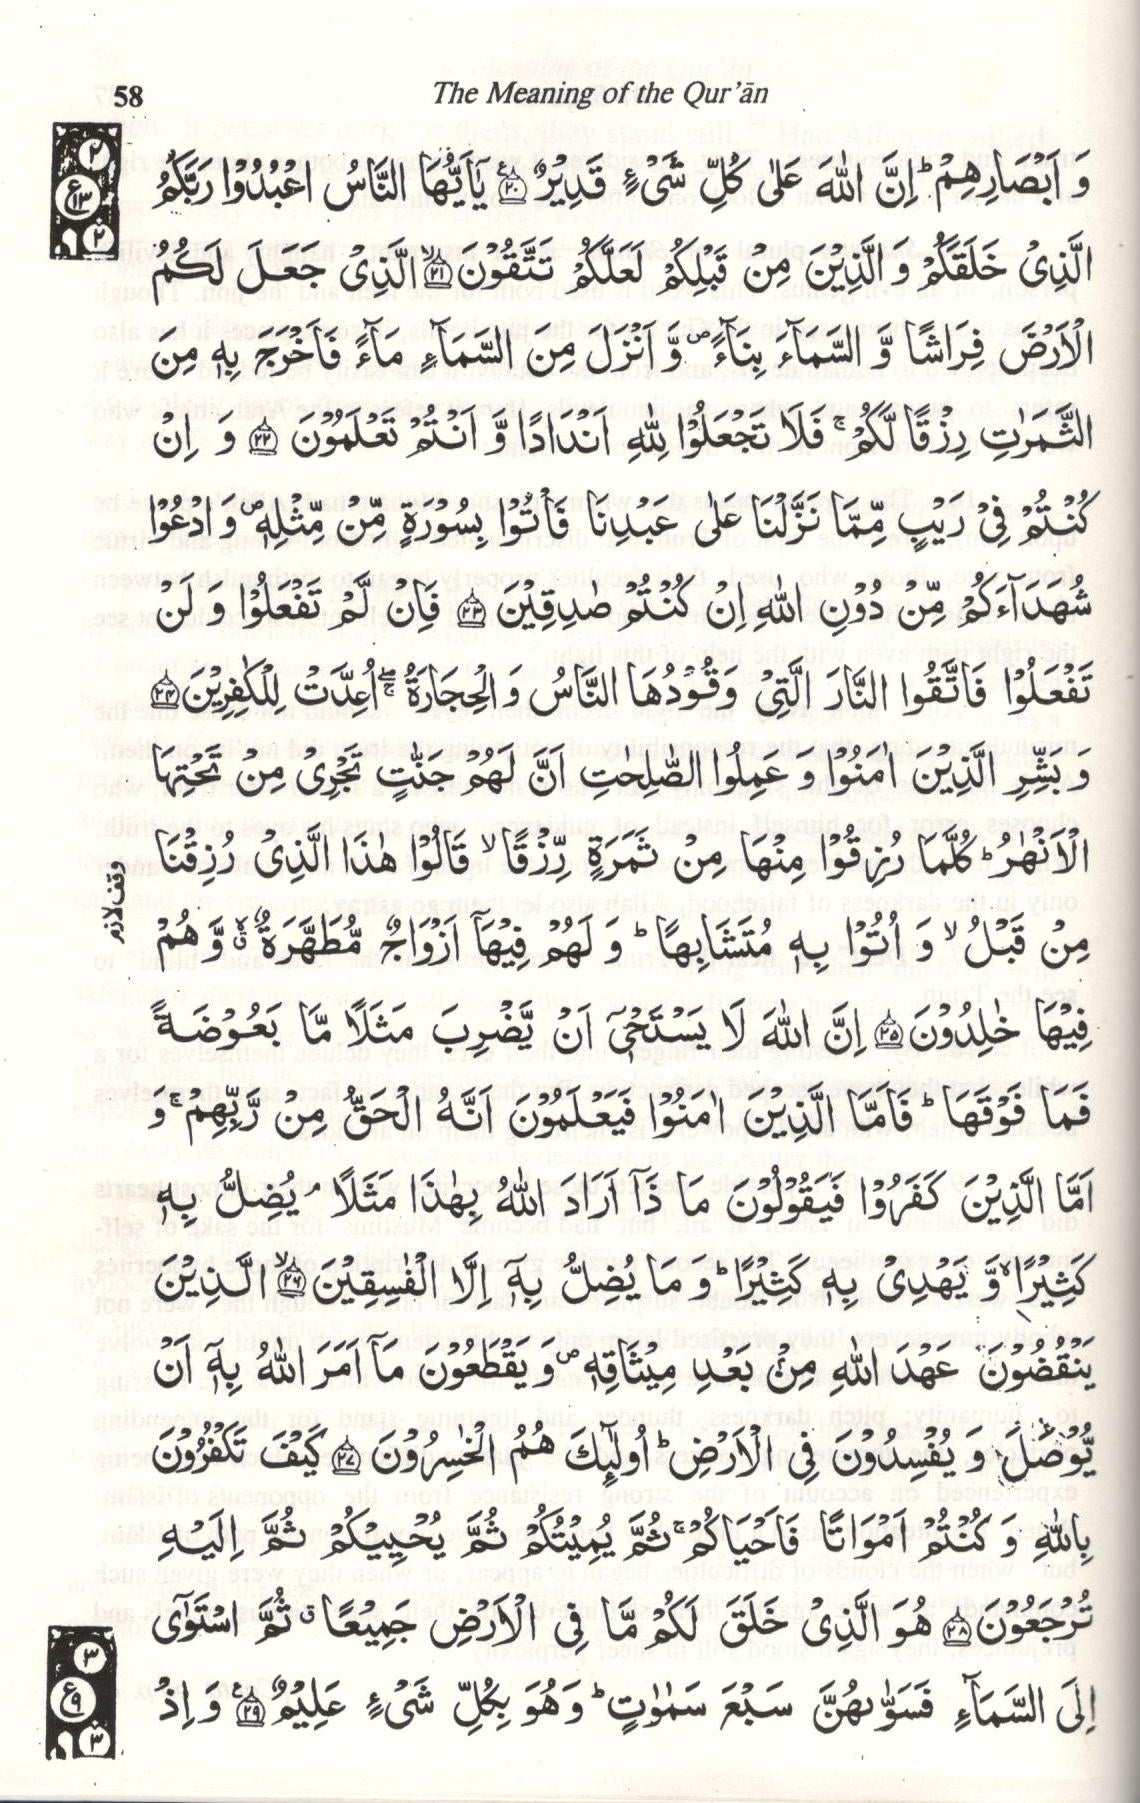 58
The Meaning of the Qur'ān
وَ اَبْصَارِهِمْ ؕ اِنَّ اللّٰهَ عَلٰی كُلِّ شَیْءٍ قَدِیْرٌ ﴿۲۰﴾ یٰۤاَیُّهَا النَّاسُ اعْبُدُوْا رَبَّكُمُ
الَّذِیْ خَلَقَكُمْ وَ الَّذِیْنَ مِنْ قَبْلِكُمْ لَعَلَّكُمْ تَتَّقُوْنَ ﴿۲۱﴾ۙ الَّذِیْ جَعَلَ لَكُمُ
الْاَرْضَ فِرَاشًا وَّ السَّمَآءَ بِنَآءً ۪ وَّ اَنْزَلَ مِنَ السَّمَآءِ مَآءً فَاَخْرَجَ بِهٖ مِنَ
الثَّمَرٰتِ رِزْقًا لَّكُمْ ۚ فَلَا تَجْعَلُوْا لِلّٰهِ اَنْدَادًا وَّ اَنْتُمْ تَعْلَمُوْنَ ﴿۲۲﴾ وَ اِنْ
كُنْتُمْ فِیْ رَیْبٍ مِّمَّا نَزَّلْنَا عَلٰی عَبْدِنَا فَاْتُوْا بِسُوْرَةٍ مِّنْ مِّثْلِهٖ ۪ وَ ادْعُوْا
شُهَدَآءَكُمْ مِّنْ دُوْنِ اللّٰهِ اِنْ كُنْتُمْ صٰدِقِیْنَ ﴿۲۳﴾ فَاِنْ لَّمْ تَفْعَلُوْا وَ لَنْ
تَفْعَلُوْا فَاتَّقُوا النَّارَ الَّتِیْ وَقُوْدُهَا النَّاسُ وَ الْحِجَارَةُ ۖۚ اُعِدَّتْ لِلْكٰفِرِیْنَ ﴿۲۴﴾
وَ بَشِّرِ الَّذِیْنَ اٰمَنُوْا وَ عَمِلُوا الصّٰلِحٰتِ اَنَّ لَهُمْ جَنّٰتٍ تَجْرِیْ مِنْ تَحْتِهَا
الْاَنْهٰرُ ؕ كُلَّمَا رُزِقُوْا مِنْهَا مِنْ ثَمَرَةٍ رِّزْقًا ۙ قَالُوْا هٰذَا الَّذِیْ رُزِقْنَا
مِنْ قَبْلُ ۙ وَ اُتُوْا بِهٖ مُتَشَابِهًا ؕ وَ لَهُمْ فِیْهَاۤ اَزْوَاجٌ مُّطَهَّرَةٌ ۙۗ وَّ هُمْ
فِیْهَا خٰلِدُوْنَ ﴿۲۵﴾ اِنَّ اللّٰهَ لَا یَسْتَحْیٖۤ اَنْ یَّضْرِبَ مَثَلًا مَّا بَعُوْضَةً
فَمَا فَوْقَهَا ؕ فَاَمَّا الَّذِیْنَ اٰمَنُوْا فَیَعْلَمُوْنَ اَنَّهُ الْحَقُّ مِنْ رَّبِّهِمْ ۚ وَ
اَمَّا الَّذِیْنَ كَفَرُوْا فَیَقُوْلُوْنَ مَا ذَاۤ اَرَادَ اللّٰهُ بِهٰذَا مَثَلًا ۘ یُضِلُّ بِهٖ
كَثِیْرًا ۙ وَّ یَهْدِیْ بِهٖ كَثِیْرًا ؕ وَ مَا یُضِلُّ بِهٖۤ اِلَّا الْفٰسِقِیْنَ ﴿۲۶﴾ۙ الَّذِیْنَ
یَنْقُضُوْنَ عَهْدَ اللّٰهِ مِنْۢ بَعْدِ مِیْثَاقِهٖ ۪ وَ یَقْطَعُوْنَ مَاۤ اَمَرَ اللّٰهُ بِهٖۤ اَنْ
یُّوْصَلَ وَ یُفْسِدُوْنَ فِی الْاَرْضِ ؕ اُولٰٓئِكَ هُمُ الْخٰسِرُوْنَ ﴿۲۷﴾ كَیْفَ تَكْفُرُوْنَ
بِاللّٰهِ وَ كُنْتُمْ اَمْوَاتًا فَاَحْیَاكُمْ ۚ ثُمَّ یُمِیْتُكُمْ ثُمَّ یُحْیِیْكُمْ ثُمَّ اِلَیْهِ
تُرْجَعُوْنَ ﴿۲۸﴾ هُوَ الَّذِیْ خَلَقَ لَكُمْ مَّا فِی الْاَرْضِ جَمِیْعًا ۗ ثُمَّ اسْتَوٰۤی
اِلَی السَّمَآءِ فَسَوّٰىهُنَّ سَبْعَ سَمٰوٰتٍ ؕ وَ هُوَ بِكُلِّ شَیْءٍ عَلِیْمٌ ﴿۲۹﴾ وَ اِذْ
۲
ع ۱۳
۲
وقف لازم
۳
ع ۹
۳